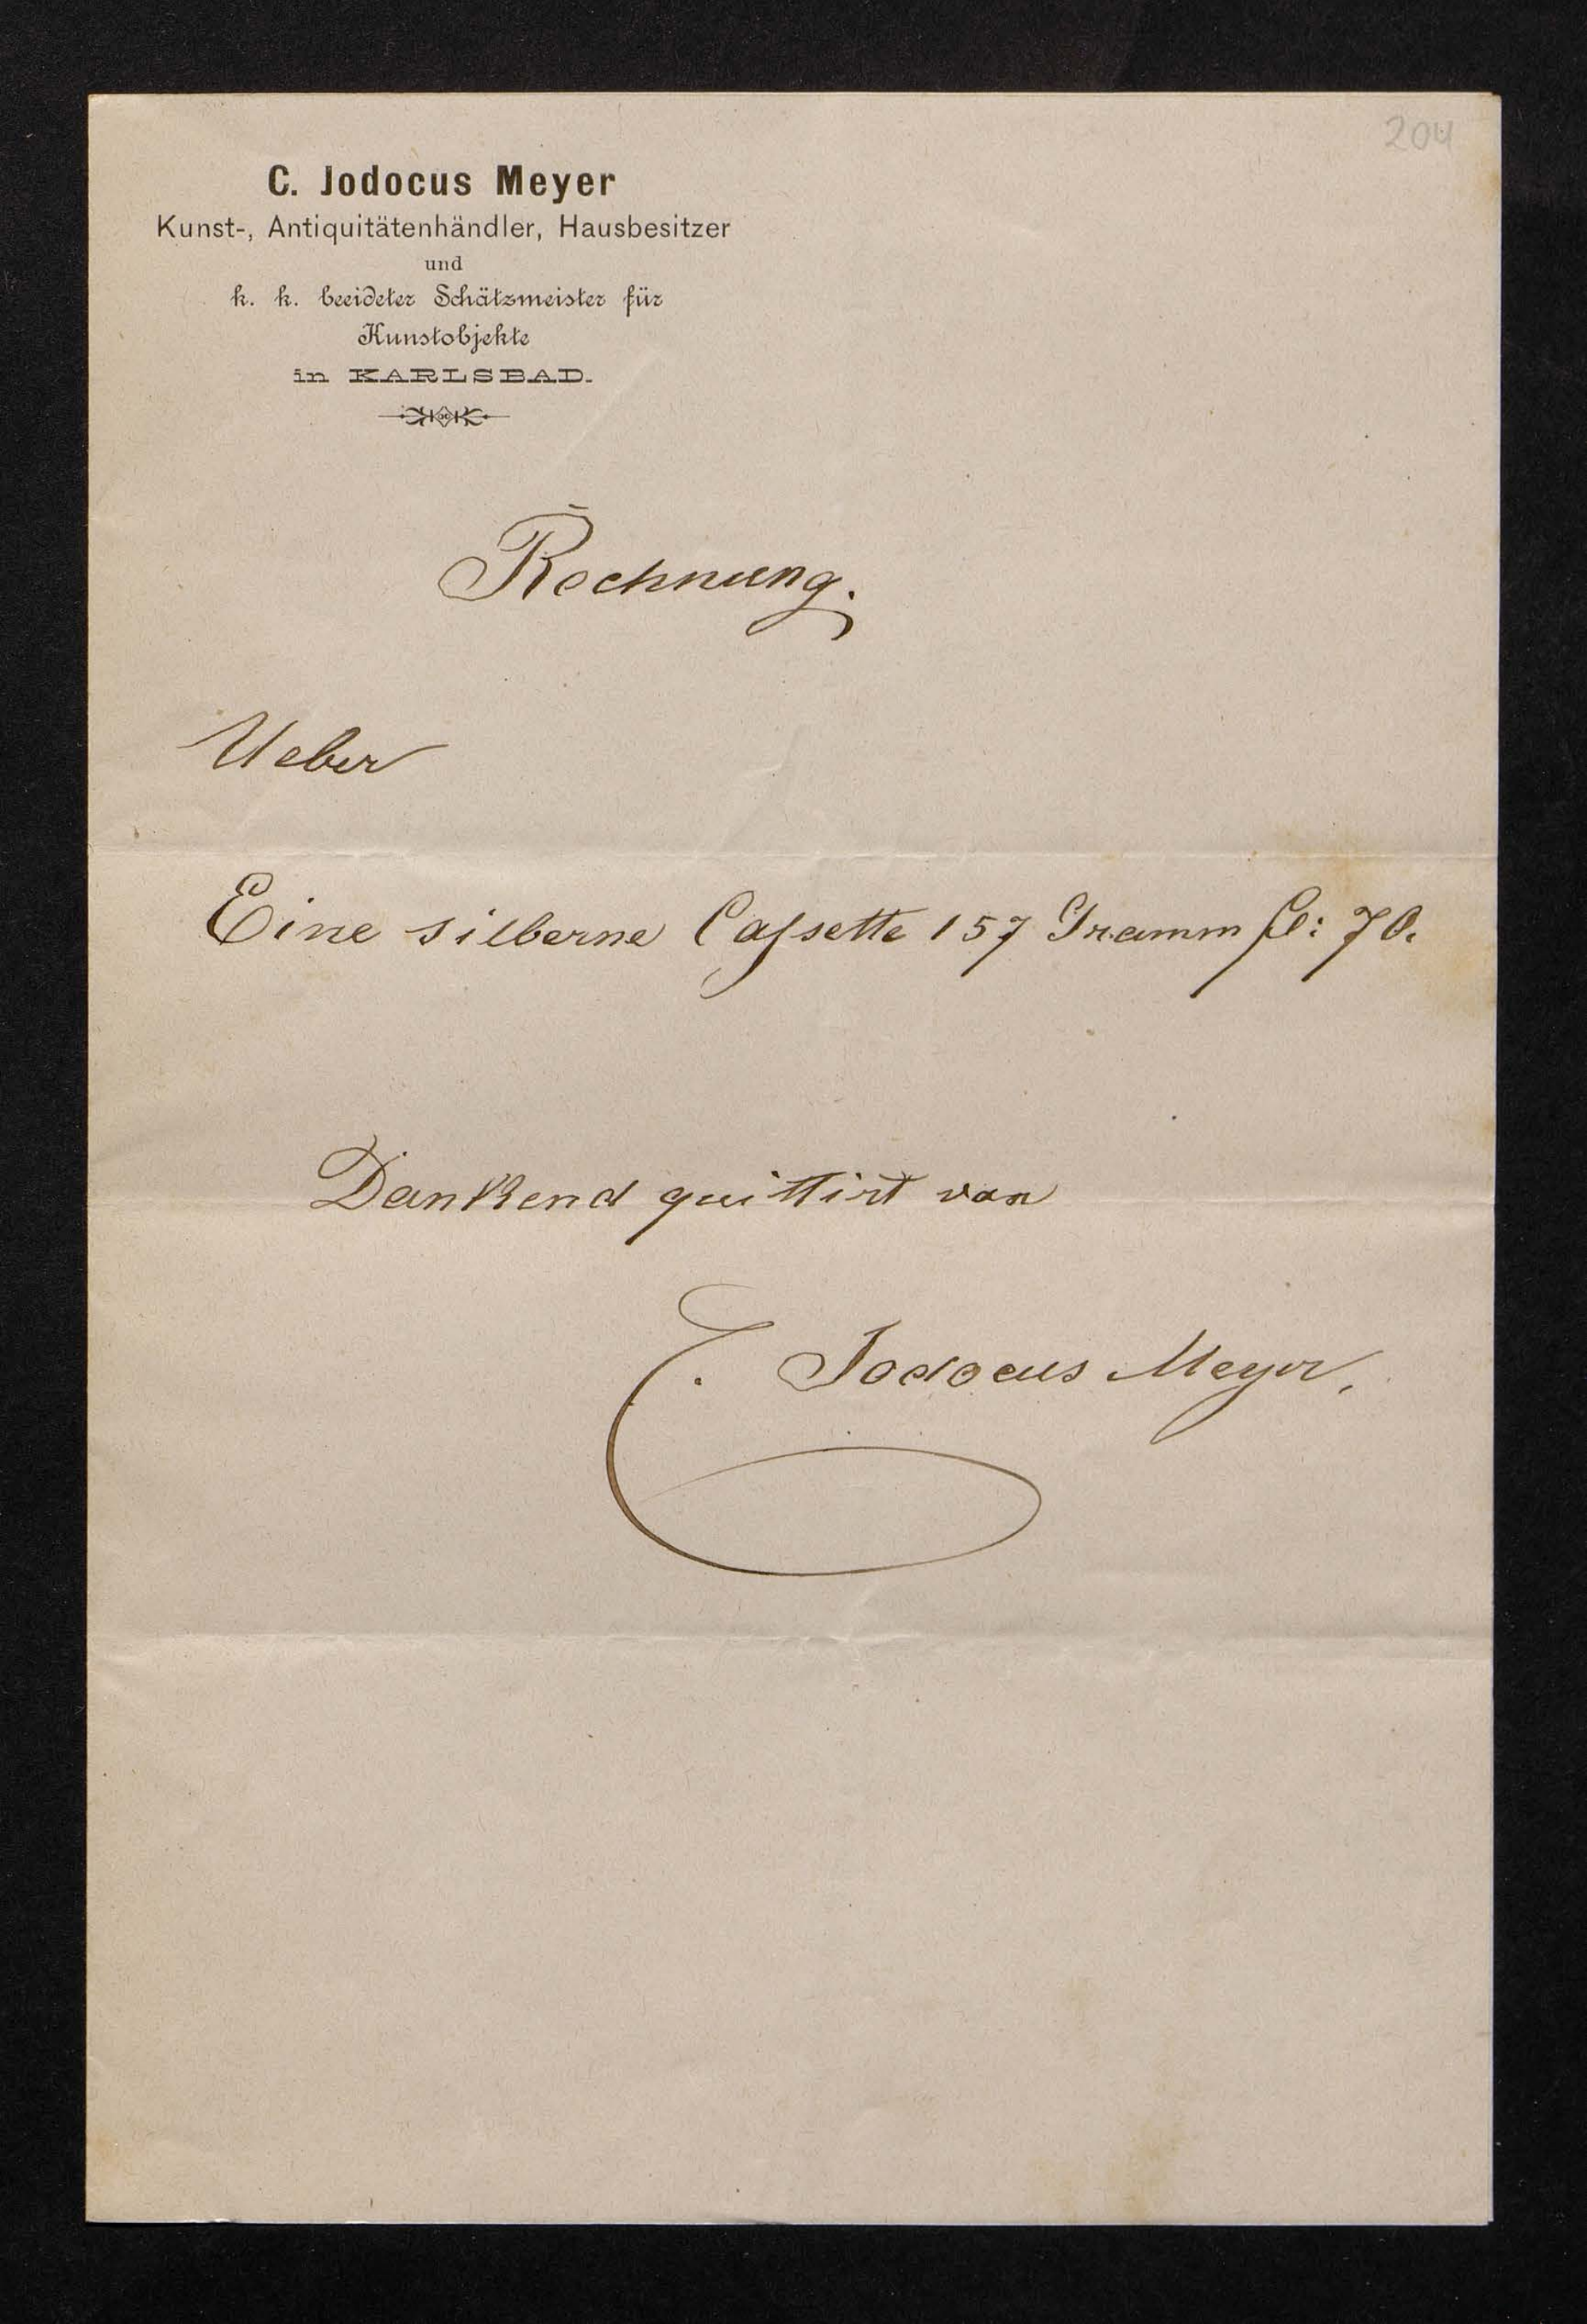 204
C. Jodocus Meyer
Kunst-, Antiquitätenhändler, Hausbesitzer
und
k. k. beeideter Schätzmeister für
Kunstobjekte
in KARLSBAD.
Rechnung.
Ueber
Eine silberne Caſsette 157 Gramm fl: 70.
Dankend quittirt von
C. Jodocus Meyer.